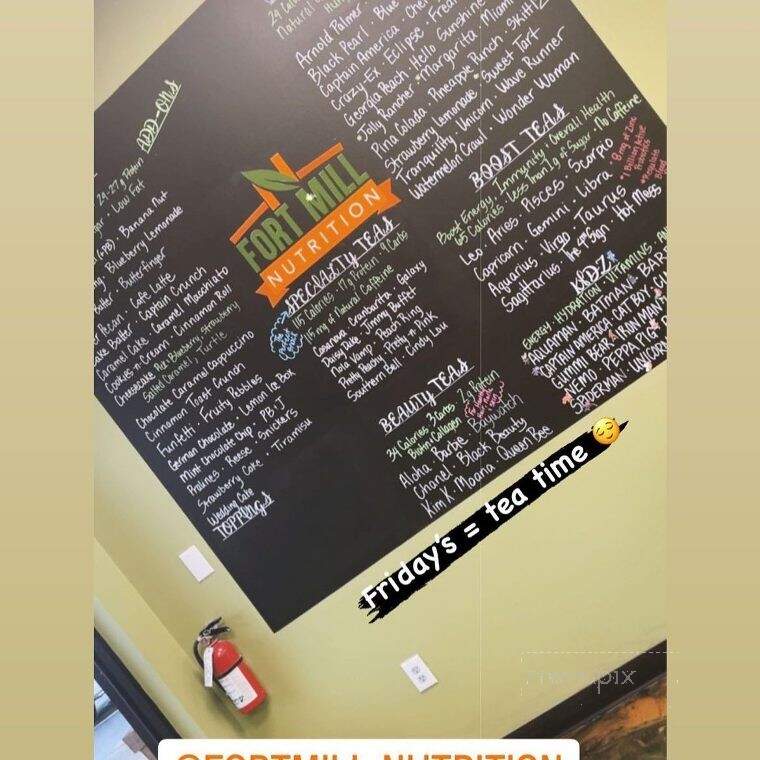 ADD-ONS
24-27g Protein
Low Fat
Banana Nut
Blueberry Lemonade
Butterfinger
Pecan · Cafe Latte
Cake Batter · Captain Crunch
Caramel Cake · Caramel Macchiato
Cookies-n-Cream · Cinnamon Roll
Cheesecake Blueberry, Strawberry
Salted Caramel, Turtle
Chocolate Caramel Cappuccino
Cinnamon Toast Crunch
Funfetti · Fruity Pebbles
German Chocolate · Lemon Ice Box
Mint Chocolate Chip · PB+J
Pralines · Reese · Snickers
Strawberry Cake · Tiramisu
Wedding Cake
TOPPINGS
FORT MILL
NUTRITION
Natural
Arnold Palmer
Black Pearl · Blue
Captain America · Che
Crazy-Ex · Eclipse
Georgia Peach · Hello Sunshine
Jolly Rancher · Margarita · Miami
Pina Colada · Pineapple Punch · Skittlz
Strawberry Lemonade · Sweet Tart
Tranquility · Unicorn · Wave Runner
Watermelon Crawl · Wonder Woman
BOOST TEAS
Boost Energy · Immunity · Overall Health
65 Calories · Less Than 1g of Sugar · No Caffeine
8 mg of Zinc
1 Billion Active
Probiotics
Leo · Aries · Pisces · Scorpio
Capricorn · Gemini · Libra
Aquarius · Virgo · Taurus
Sagittarius · The 4th Sign · Hot Mess
SPECIALTY TEAS
115 Calories · 17g Protein · 9 Carbs
115 mg of Natural Caffeine
Casanova · Cranbertra · Galaxy
Daisy Duke · Jimmy Buffet
Maia Vamp · Peach Ring
Pretty Peachy · Pretty n Pink
Southern Bell · Cindy Lou
BEAUTY TEAS
34 Calories 3 Carbs
Biotin + Collagen
Aloha · Barbie · Baywatch
Chanel · Black Beauty
Kim K · Moana · Queen Bee
KIDZ
ENERGY · HYDRATION · VITAMINS
AQUAMAN · BATMAN · BAR
CAPTAIN AMERICA · CATBOY
GUMMI BEAR · IRON MAN
NEMO · PEPPA PIG
SPIDERMAN · UNICORN
Friday's = tea time
@FORTMILL_NUTRITION